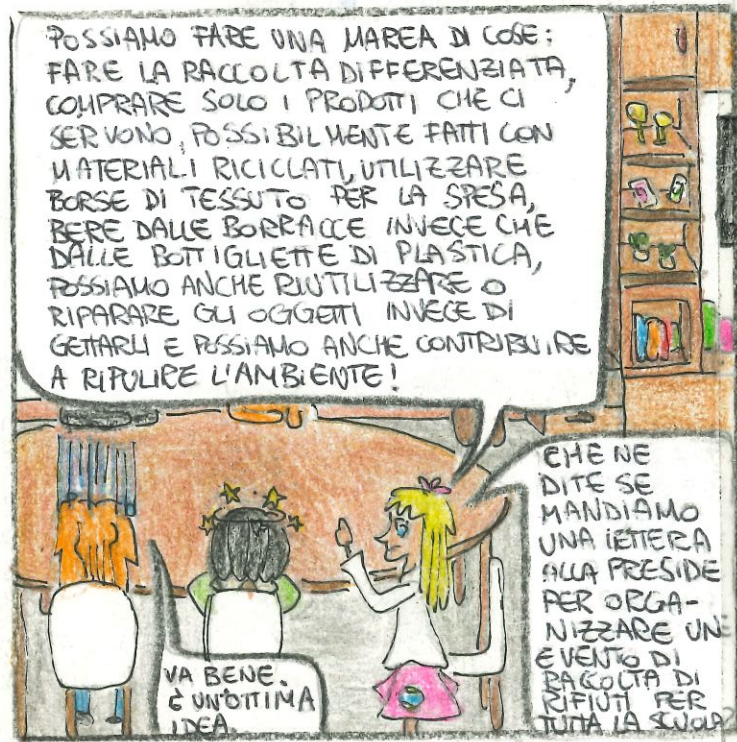 POSSIAMO FARE UNA MAREA DI COSE:
FARE LA RACCOLTA DIFFERENZIATA,
COMPRARE SOLO I PRODOTTI CHE CI
SERVONO, POSSIBILMENTE FATTI CON
MATERIALI RICICLATI, UTILIZZARE
BORSE DI TESSUTO PER LA SPESA,
BERE DALLE BORRACCE INVECE CHE
DALLE BOTTIGLIETTE DI PLASTICA,
POSSIAMO ANCHE RIUTILIZZARE O
RIPARARE GLI OGGETTI INVECE DI
GETTARLI E POSSIAMO ANCHE CONTRIBUIRE
A RIPULIRE L'AMBIENTE!
CHE NE
DITE SE
MANDIAMO
UNA LETTERA
ALLA PRESIDE
PER ORGA-
NIZZARE UN
EVENTO DI
RACCOLTA DI
RIFIUTI PER
TUTTA LA SCUOLA?
VA BENE.
È UN'OTTIMA
IDEA.